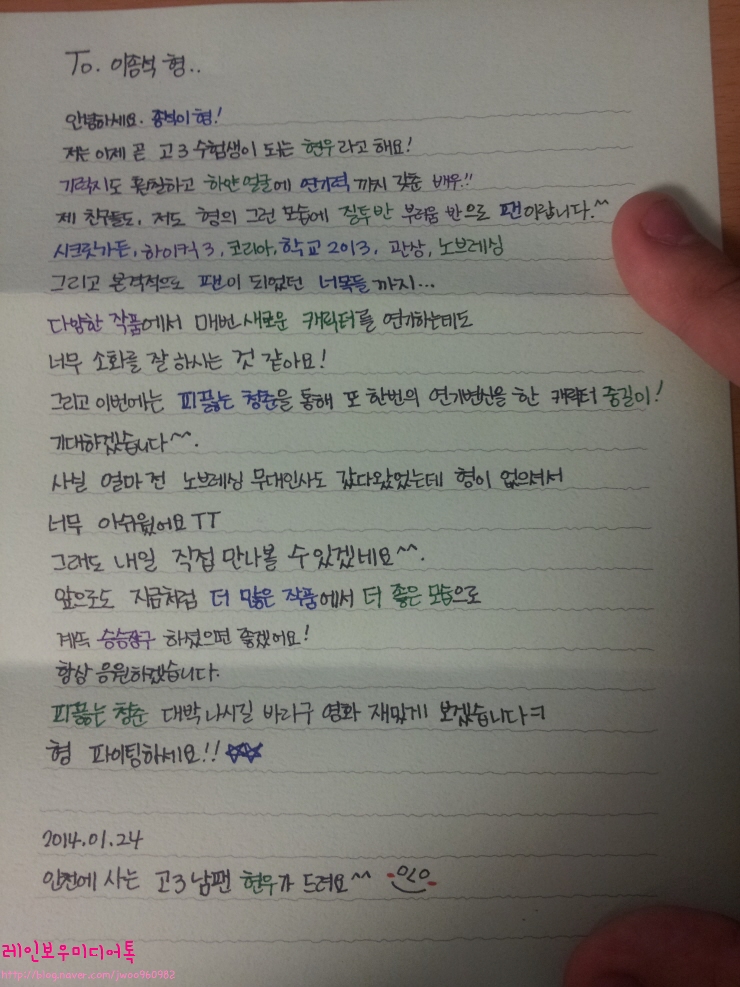 To. 이종석 형..
안녕하세요. 종석이형!
저는 이제 곧 고3 수험생이 되는 현우라고 해요!
기럭지도 훤칠하고 하얀얼굴에 연기력 까지 갖춘 배우!!
제 친구들도, 저도 형의 그런 모습에 질투반 부러움 반으로 팬이랍니다.^^
시크릿가든, 하이킥3, 코리아, 학교2013, 관상, 노브레싱
그리고 본격적으로 팬이 되었던 너목들 까지...
다양한 작품에서 매번 새로운 캐릭터를 연기하는데도
너무 소화를 잘 하시는 것 같아요!
그리고 이번에는 피끓는 청춘을 통해 또 한번의 연기변신을 한 캐릭터 중길이!
기대하겠습니다^^.
사실 얼마전 노브레싱 무대인사도 갔다왔었는데 형이 없으셔서
너무 아쉬웠어요TT
그래도 내일 직접 만나볼 수 있겠네요^^.
앞으로도 지금처럼 더 많은 작품에서 더 좋은 모습으로
계속 승승장구 하셨으면 좋겠어요!
항상 응원하겠습니다.
피끓는 청춘 대박나시길 바라구 영화 재밌게 보겠습니다ㅋ
형 파이팅하세요!!
2014.01.24
인천에 사는 고3남팬 현우가 드려요^^
레인보우미디어톡
http://blog.naver.com/jwoo960982